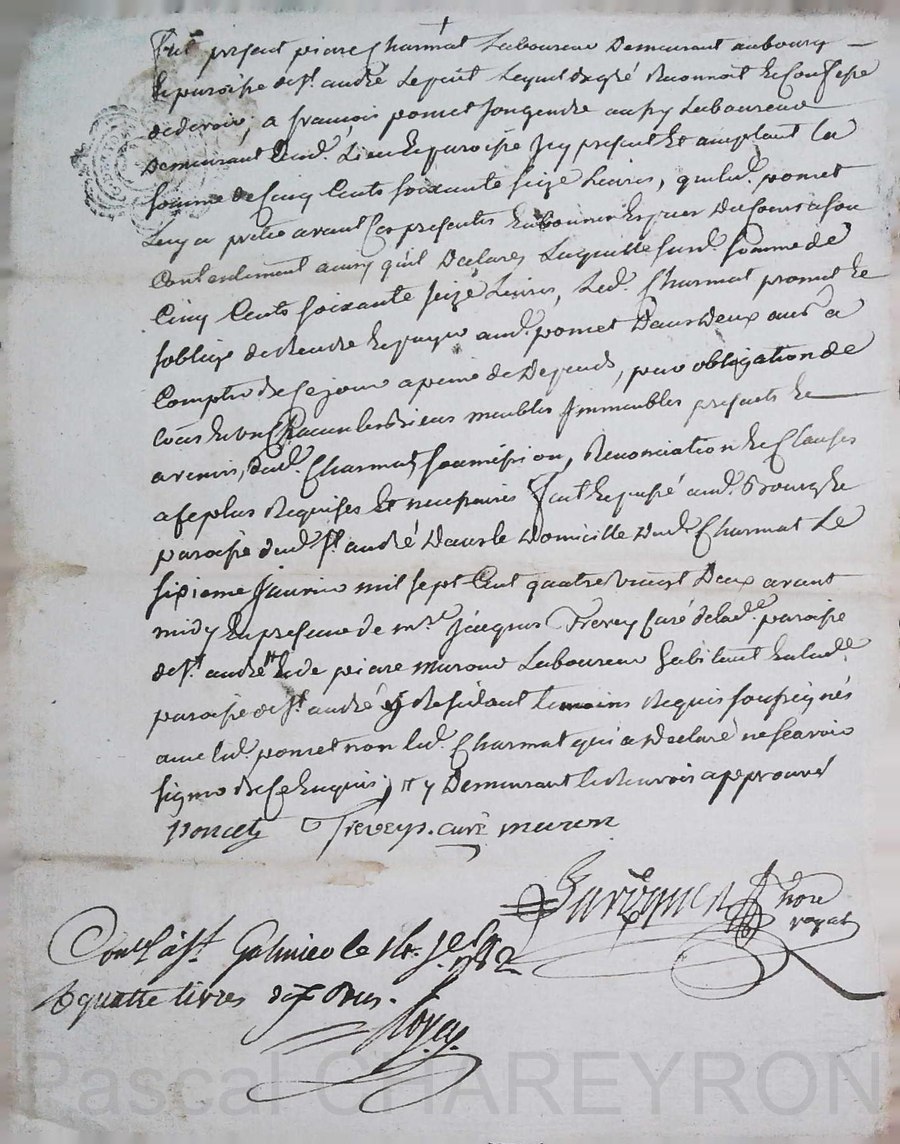 Fut présent piare Charmat Laboureur Demeurant au bourg
& paroisse de St. andré Lequel de gré Reconnoit & Confesse
de devoir, a françois pomet son gendre aussy Laboureur
Demeurant Aud. Lieu & paroisse Icy présent Et acceptant la
somme de Cinq Cents soixante seize Livres, que led. pomet
Luy a prêté avant Ces présentes
Contentement ainsy qu'il Declare, Laquelle susd. somme de
Cinq Cents soixante seize Livres, Led. Charmat promet &
s'oblige de Rendre & payer aud. pomet Dans Deux ans a
Compter de Ce jour a peine de Depends, pour obligation de
biens meubles Immeubles présents &
avenir, dud. Charmat, soumission, Renonciation & Clauses
a Ce plus Requises Et necessaires fait & passé aud. Bourg &
paroisse dud. St. andré Dans le Domicille Dud. Charmat Le
sixieme Janvier mil sept Cent quatre vingt Deux avant
midy En presence de mre. Jacques Treveys Curé de lad. paroisse
de St. andré & de piare muron Laboureur habitant En lad.
paroisse de St. andré y Residant temoins Requis soussignés
avec led. pomet non led. Charmat qui a Declaré ne scavoir
signer de Ce Enquis; y Demeurant approuvé
Treveys. curé muron
nore
royal
Conlé à St. Galmier le
quatre livres dix sous.
Pascal CHAREYRON